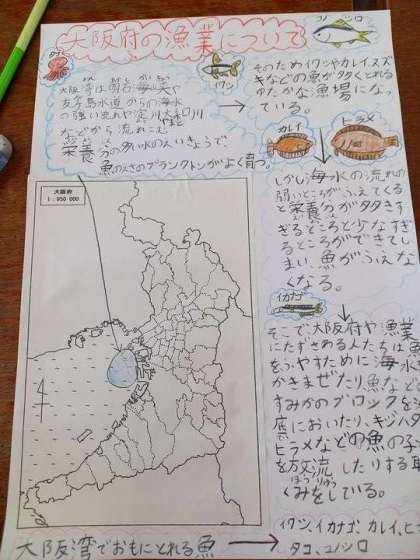 大阪府の漁業について
コノシロ
タコ
イワシ
大阪湾は明石海峡や
友ヶ島水道からの海水
の強い流れや淀川大和川
などから流れこむ
栄養分の多い水のえいきょうで、
魚のえさのプランクトンがよく育つ。
そのためイワシやカレイスズ
キなどの魚が多くとれる
ゆたかな漁場になっ
ている。
カレイ
ヒラメ
しかし海水の流れの
弱いところがふえてくる
と栄養分が多すぎ
ぎるところと少なすぎ
るところができてし
まい魚がふえな
くなる。
イカナゴ
そこで大阪府や漁業
にたずさわる人たちは魚
をふやすために海水
かきまぜたり魚など
すみかのブロックを
底においたり、キジハタ
ヒラメなどの魚の
を放流したりする
ほうりゅう
くみをしている。
大阪府
1:950 000
大阪湾でおもにとれる魚
イワシ、イカナゴ、カレイ、ヒ
タコ、コノシロ